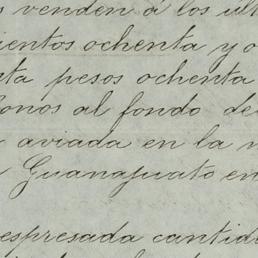 venden á los ult
ientos ochenta y o
ta pesos ochenta
onos al fondo de
aviada en la
Guanajuato en
espresada cantid